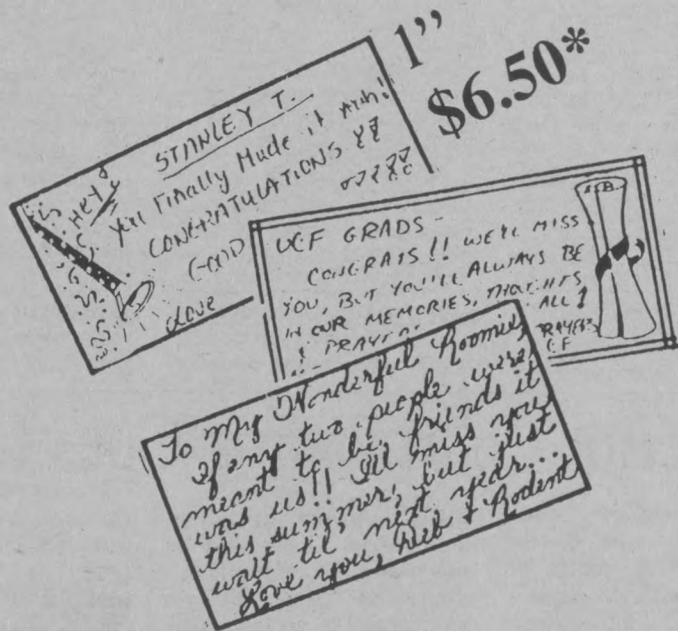 1”
$6.50*
HEY!
STANLEY T.
You Finally Made it
CONGRATULATIONS
GOOD
Love
UCF GRADS -
CONGRATS!! WE'LL MISS
YOU, BUT YOU'LL ALWAYS BE
IN OUR MEMORIES, THOUGHTS
ALL
To My Wonderful Roomie,
If any two people were
meant to be friends it
was us!! I'll miss you
this summer, but just
wait til' next year...
Love you, Deb & Rodent